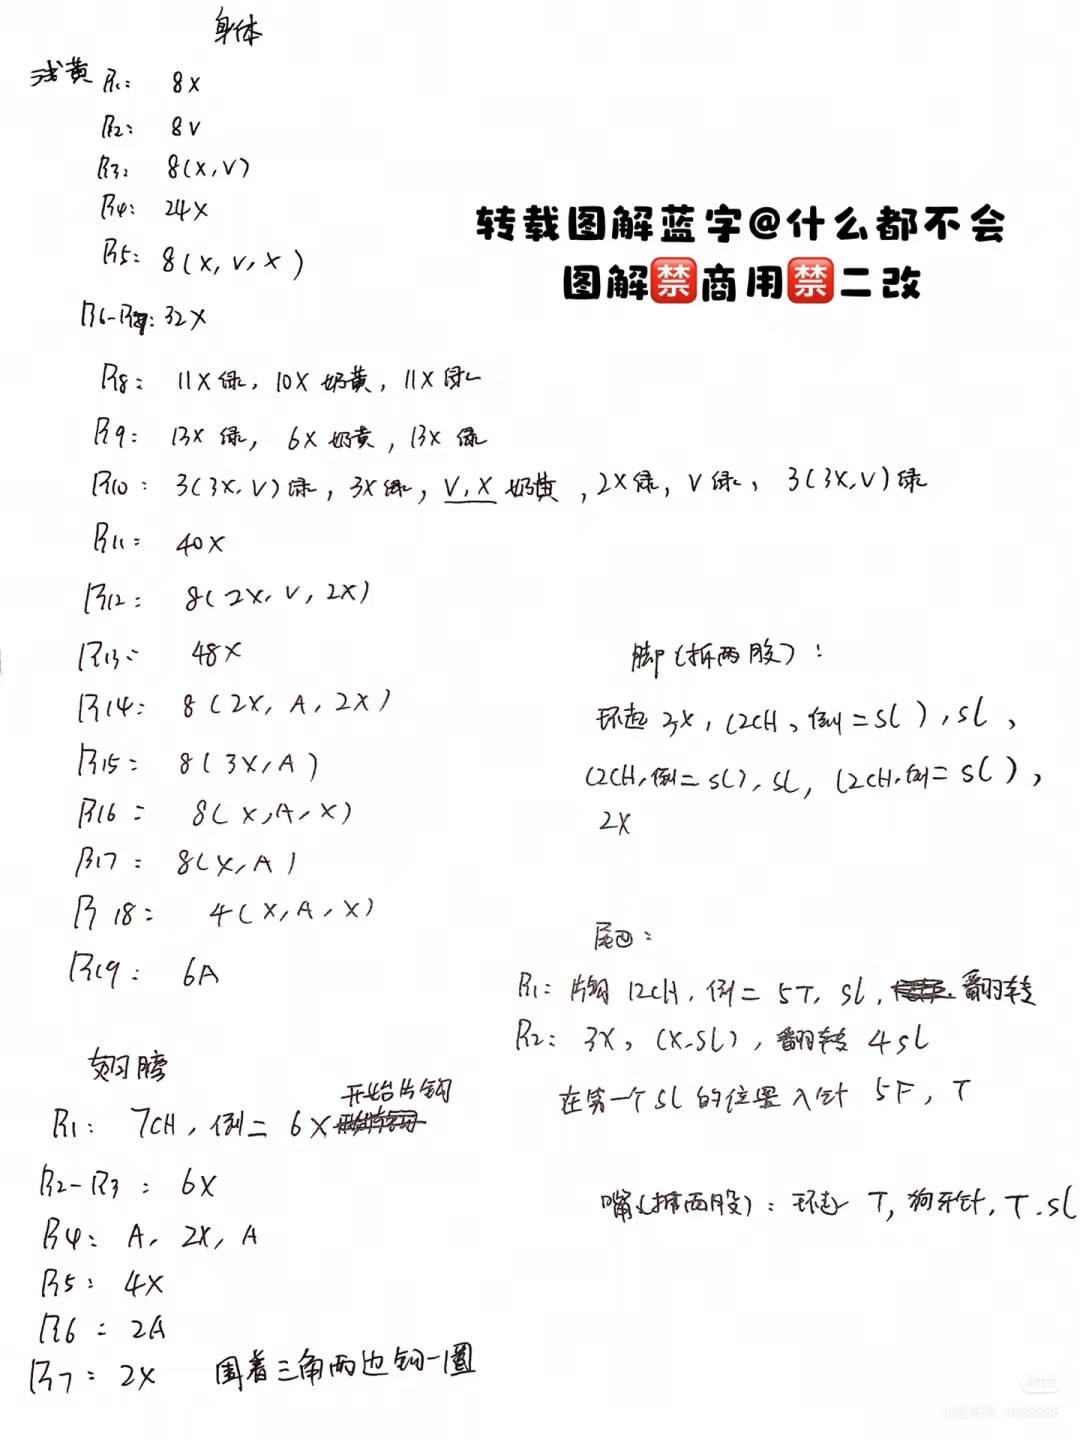 身体
浅黄 R1: 8X
R2: 8V
R3: 8(X,V)
R4: 24X
R5: 8(X,V,X)
转载图解蓝字@什么都不会
图解禁商用禁二改
R6-R7: 32X
R8: 11X绿, 10X奶黄, 11X绿
R9: 13X绿, 6X奶黄, 13X绿
R10: 3(3X,V)绿, 3X绿, V,X奶黄, 2X绿, V绿, 3(3X,V)绿
R11: 40X
R12: 8(2X,V,2X)
R13: 48X
R14: 8(2X,A,2X)
R15: 8(3X,A)
R16: 8(X,A,X)
R17: 8(X,A)
R18: 4(X,A,X)
R19: 6A
脚(拆两股):
环起3X,(2CH,倒二SL),SL,
(2CH,倒二SL),SL,(2CH,倒二SL),
2X
尾巴:
R1: 片钩12CH,倒二5T,SL, 翻转
R2: 3X,(X.SL),翻转4SL
在第一个SL的位置入针5F,T
嘴(拆两股): 环起T,狗牙针,T.SL
翅膀
R1: 7CH,倒二6X 开始片钩
R2-R3: 6X
R4: A, 2X, A
R5: 4X
R6: 2A
R7: 2X 围着三角两边钩一圈
小红书